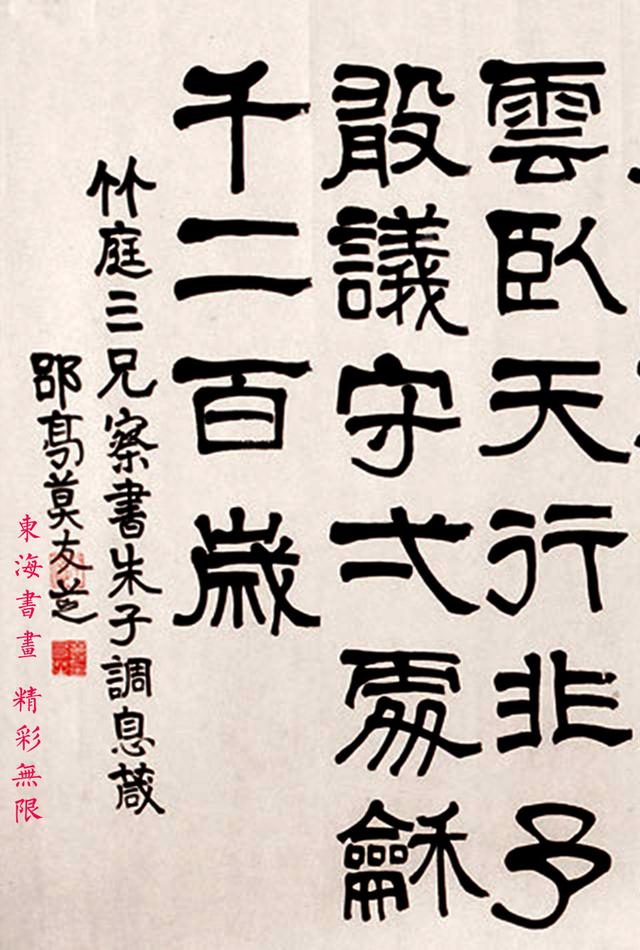 雲臥天行非予
敢議守弌處龢
千二百歲
竹庭三兄察書朱子調息葴
郘亭莫友芝
東海書畫 精彩無限